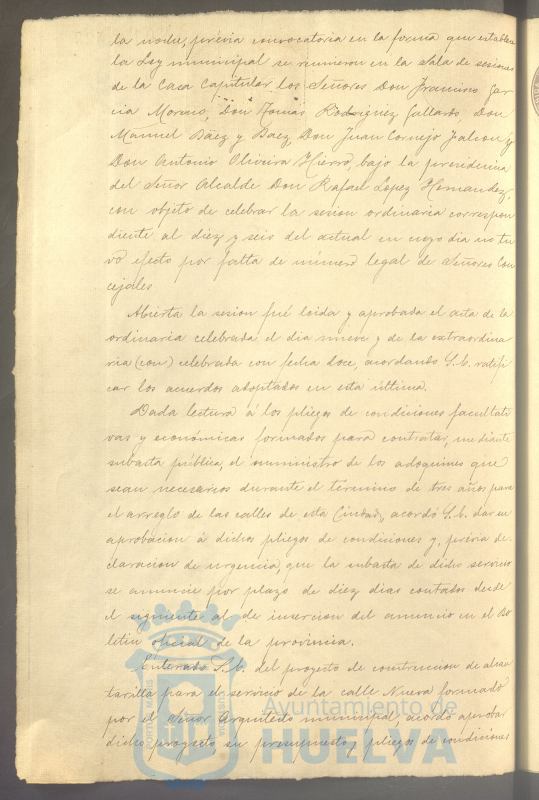 la noche, prévia convocatoria en la forma que establece
la Ley municipal se reunieron en la Sala de sesiones
de la Casa Capitular los Señores Don Francisco Gar
cia Moreno, Don Tomás Rodriguez Gallardo, Don
Manuel Báez y Baez, Don Juan Cornejo Falcon y
Don Antonio Oliveira Hierro, bajo la presidencia
del Señor Alcalde Don Rafael Lopez Hernandez,
con objeto de celebrar la sesion ordinaria correspon
diente al diez y seis del actual en cuyo dia no tu
vo efecto por falta de número legal de Señores Con
cejales
Abierta la sesion fué leida y aprobada el acta de la
ordinaria celebrada el dia nueve y de la extraordina
ria (con) celebrada con fecha doce, acordando S.E. ratifi
car los acuerdos adoptados en esta última.
Dada lectura á los pliegos de condiciones facultati
vas y económicas formados para contratar, mediante
subasta pública, el suministro de los adoquines que
sean necesarios durante el término de tres años para
el arreglo de las calles de esta Ciudad, acordó S.E. dar su
aprobacion á dichos pliegos de condiciones y, prévia de
claracion de urgencia, que la subasta de dicho servicio
se anuncie por plazo de diez dias contados desde
el siguiente al de insercion del anuncio en el Bo
letin oficial de la provincia.
Enterado S.E. del proyecto de construccion de alcan
tarilla para el servicio de la calle Nueva formado
por el Señor Arquitecto municipal, acordó aprobar
dicho proyecto, su presupuesto y pliegos de condiciones
PORTUS MARIS
CUSTODIA
Ayuntamiento de
HUELVA